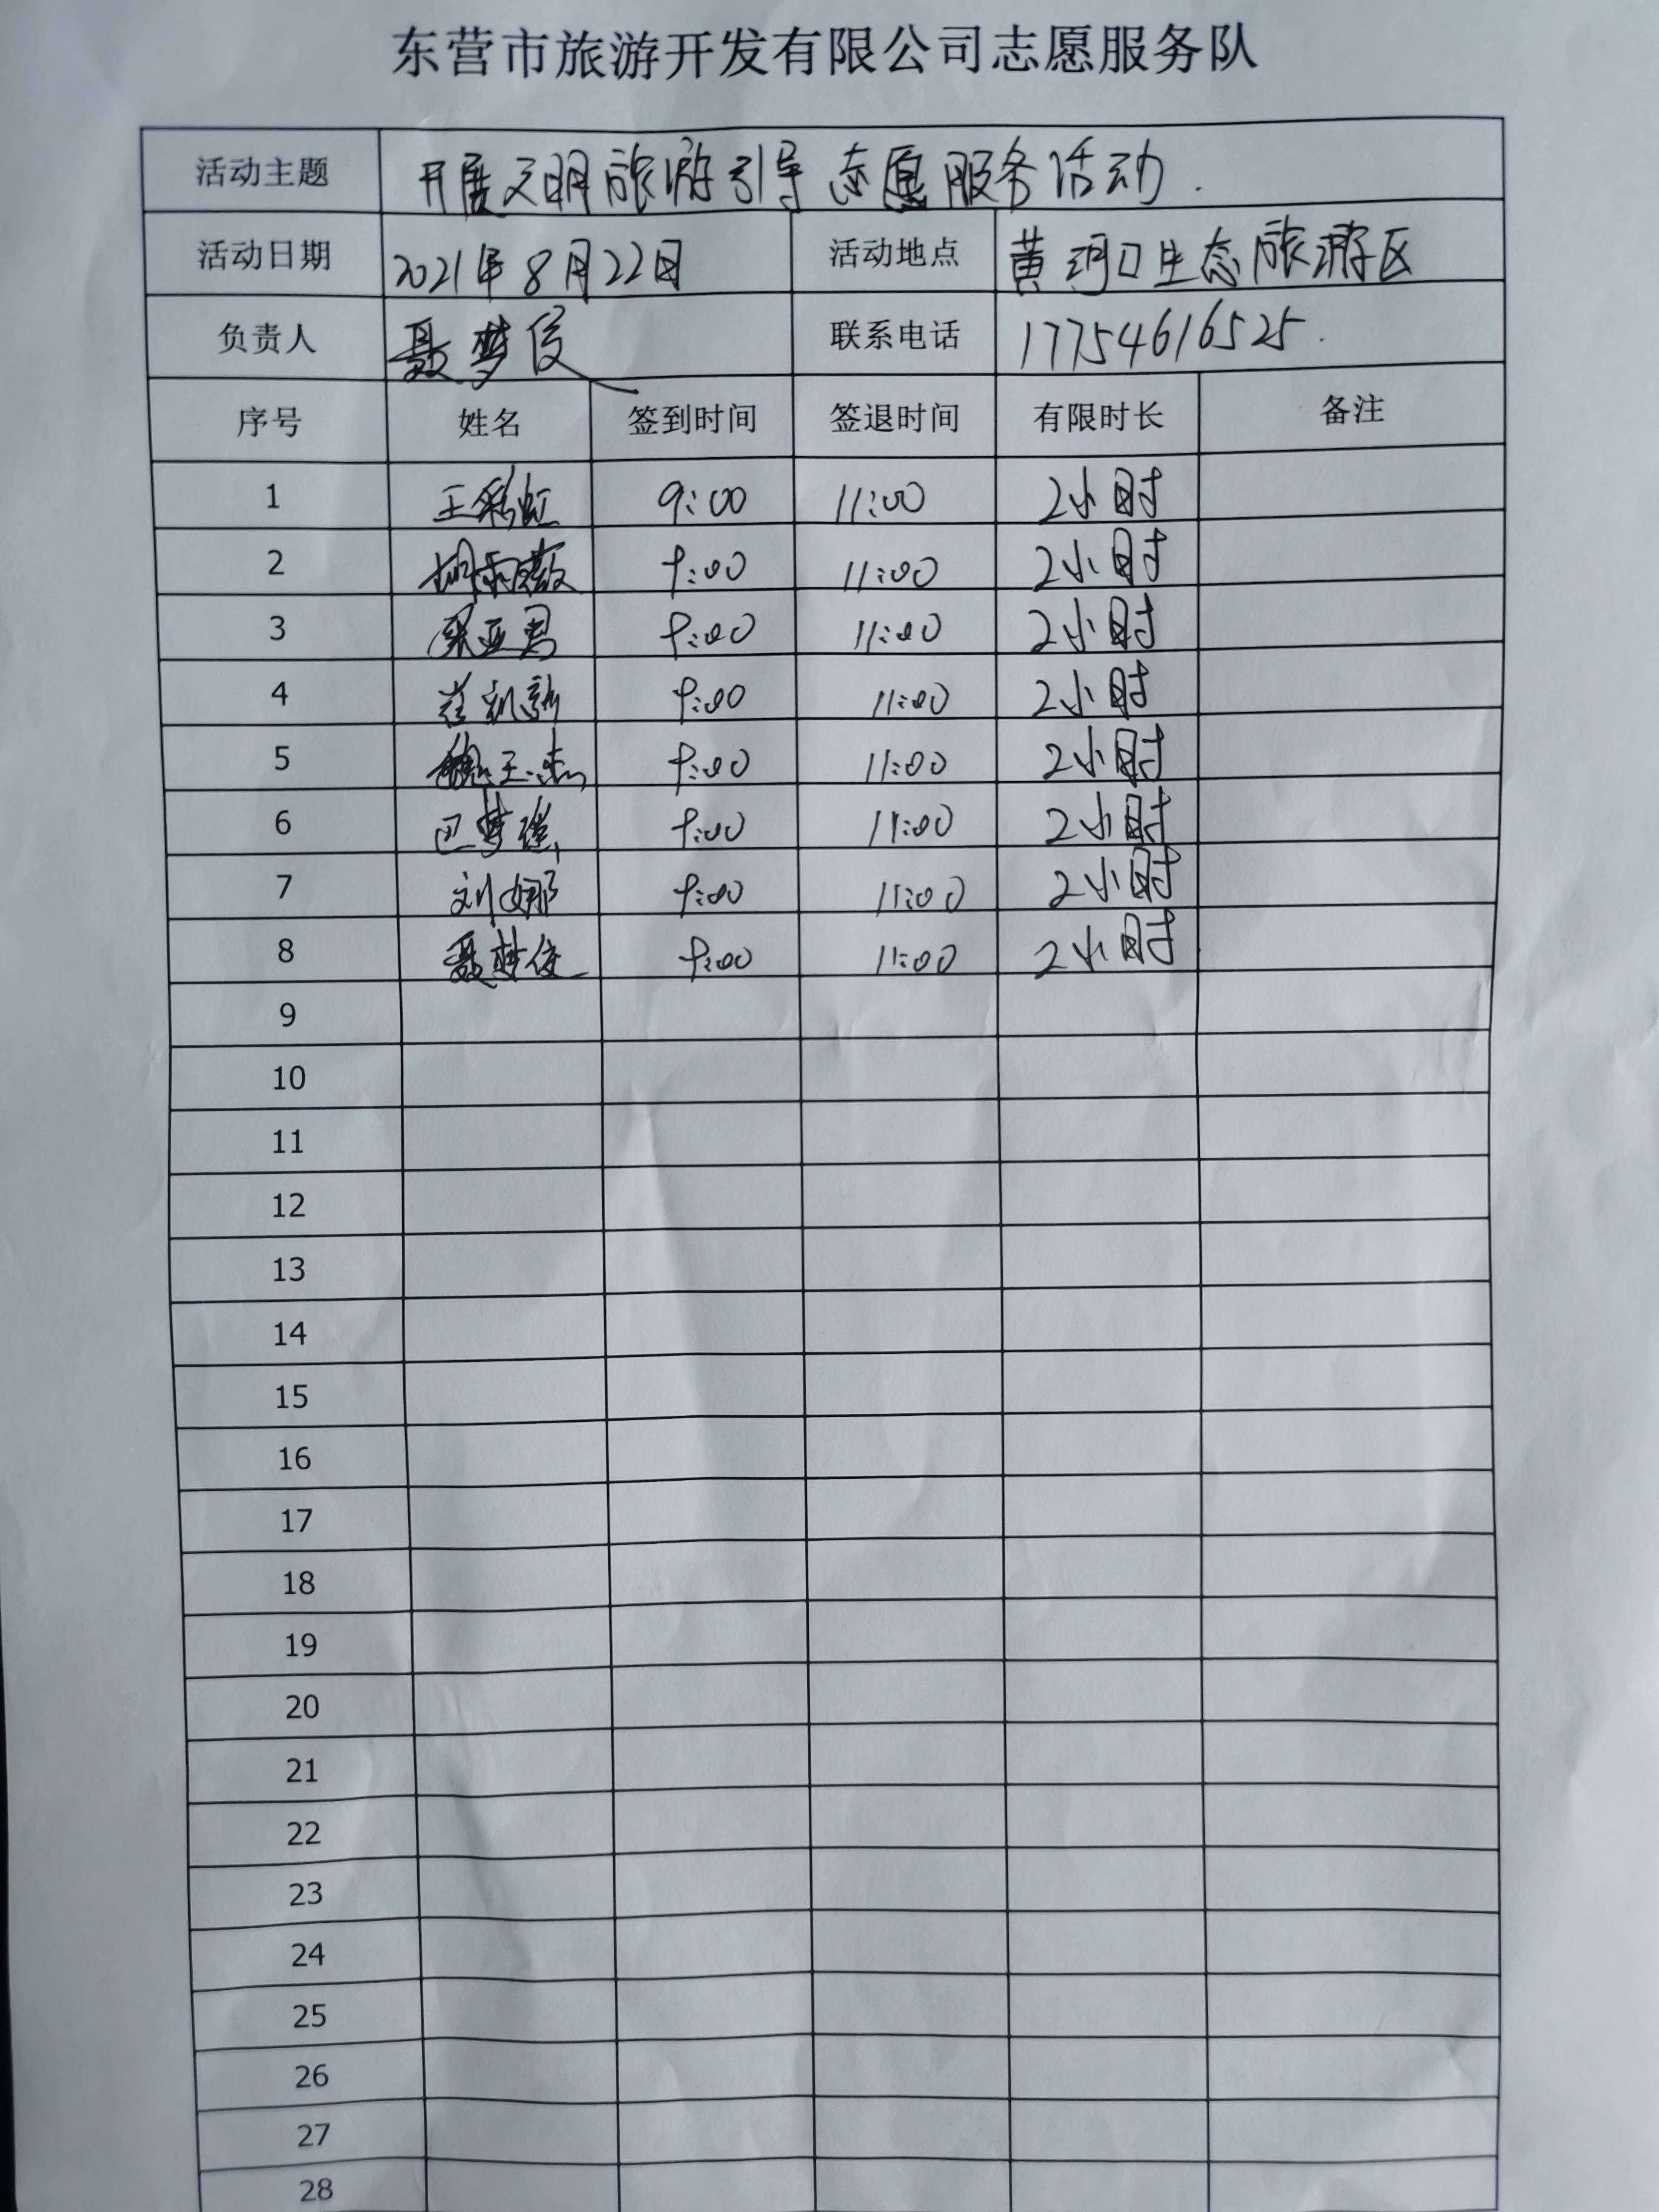 东营市旅游开发有限公司志愿服务队
活动主题 开展文明旅游引导志愿服务活动.
活动日期 2021年8月22日 活动地点 黄河口生态旅游区
负责人 聂梦俊 联系电话 17754616525.
序号 姓名 签到时间 签退时间 有限时长 备注
1 王彩虹 9:00 11:00 2小时
2 胡雨薇 9:00 11:00 2小时
3 亚君 9:00 11:00 2小时
4 崔凯新 9:00 11:00 2小时
5 魏玉杰 9:00 11:00 2小时
6 巴梦瑶 9:00 11:00 2小时
7 刘娜 9:00 11:00 2小时
8 聂梦俊 9:00 11:00 2小时
9
10
11
12
13
14
15
16
17
18
19
20
21
22
23
24
25
26
27
28